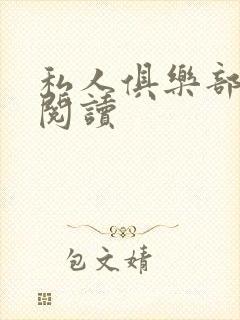 私人俱樂部
閱讀
包文婧